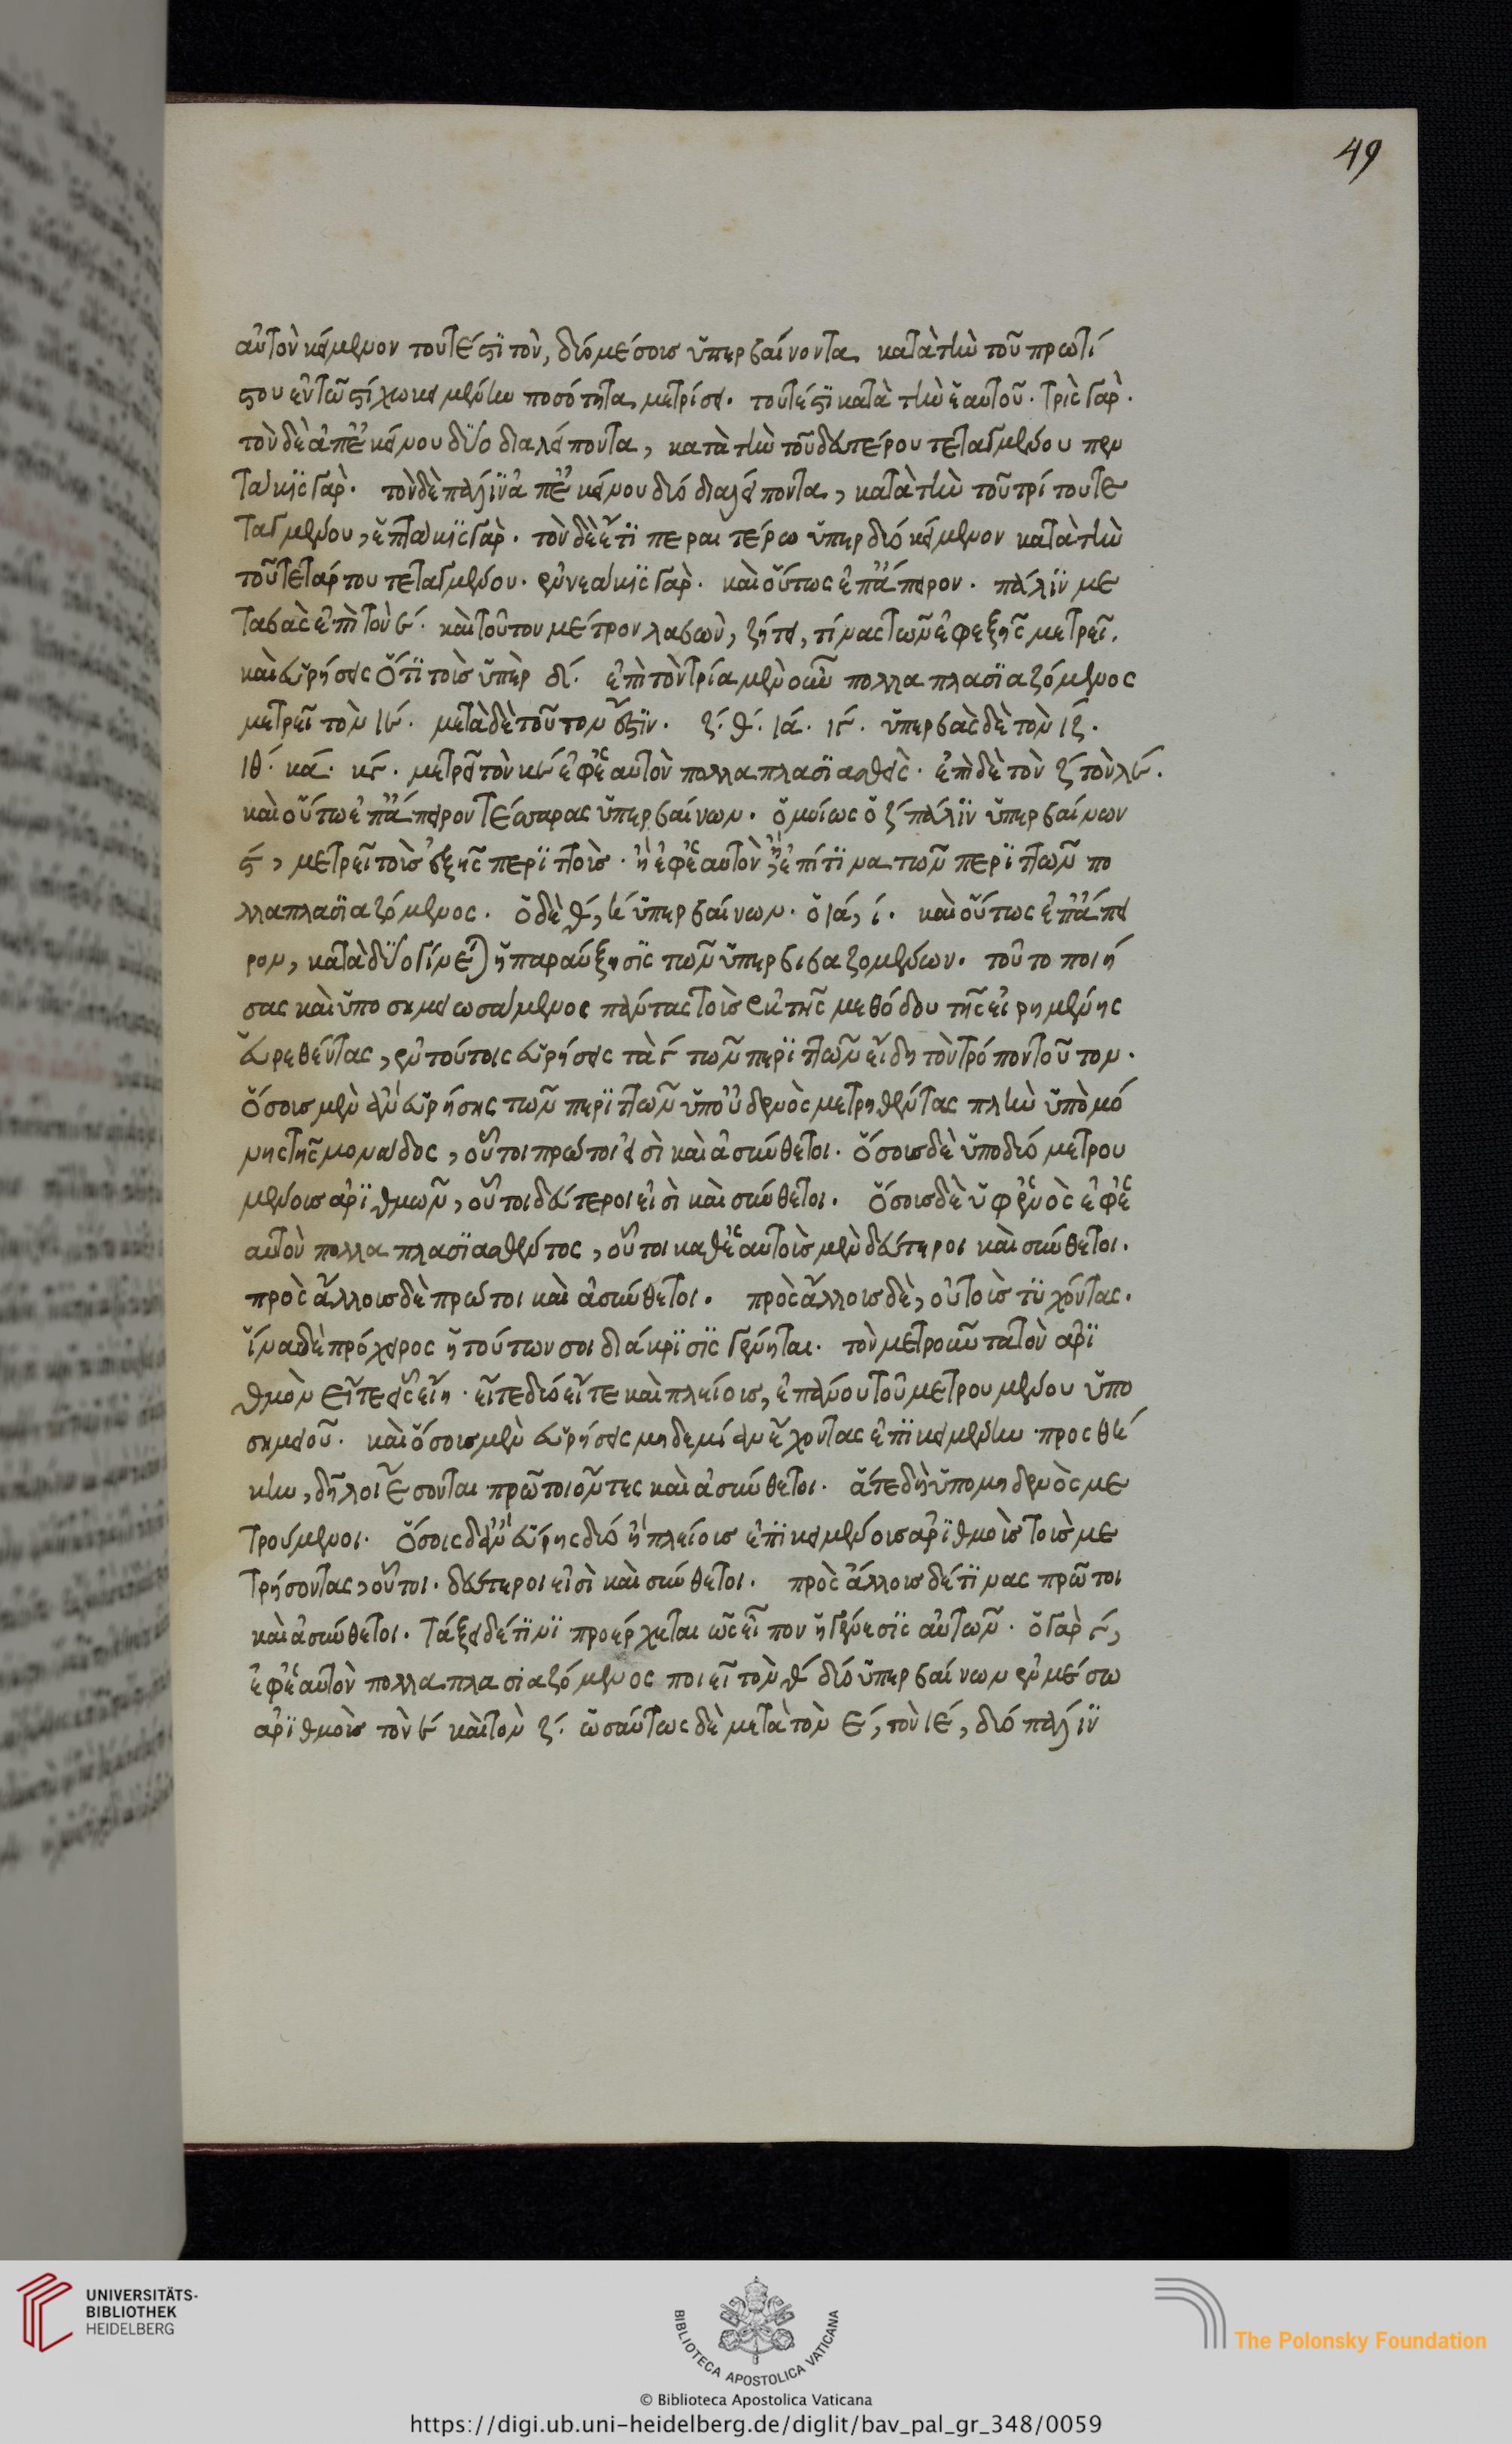 49
αὐτὸν κείμενον τουτέστι τὸν, δύο μέσους ὑπερβαίνοντα κατὰ τὴν τοῦ πρωτί
στου ἐν τῷ στίχῳ κειμένην ποσότητα μετρήσει. τουτέστι κατὰ τὴν ἑαυτοῦ. τρὶς γὰρ.
τὸν δὲ ἀπ' ἐκείνου δύο διαλείποντα, κατὰ τὴν τοῦ δευτέρου τεταγμένου πεν
τάκις γὰρ. τὸν δὲ πάλιν ἀπ' ἐκείνου δύο διαλείποντα, κατὰ τὴν τοῦ τρίτου τε
ταγμένου, ἑπτάκις γὰρ. τὸν δὲ ἔτι περαιτέρω ὑπὲρ δύο κείμενον κατὰ τὴν
τοῦ τετάρτου τεταγμένου. ἐννεάκις γὰρ. καὶ οὕτως ἐπ' ἄπειρον. πάλιν με
ταβὰς ἐπὶ τὸν ε´. καὶ τοῦτον μέτρον λαβὼν, ζήτει, τίνας τῶν ἐφεξῆς μετρεῖ.
καὶ εὑρήσεις ὅτι τοὺς ὑπὲρ δ´. ἐπὶ τὸν τρία μὲν οὖν πολλαπλασιαζόμενος
μετρεῖ τὸν ιε´. μετὰ δὲ τοῦτον ἐστὶν. ζ´. θ´. ια´. ιγ´. ὑπερβὰς δὲ τὸν ιζ´.
ιθ´. κα´. κγ´. μετρεῖ τὸν κε´ ἐφ' ἑαυτὸν πολλαπλασιασθεὶς. ἐπὶ δὲ τὸν ζ´ τὸν λε´.
καὶ οὕτω ἐπ' ἄπειρον τέσσαρας ὑπερβαίνων. ὁμοίως ὁ ζ´ πάλιν ὑπερβαίνων
ϛ´, μετρεῖ τοὺς ἑξῆς περιττοὺς. ἢ ἐφ' ἑαυτὸν ἢ ἐπί τινα τῶν περιττῶν πο
λλαπλασιαζόμενος. ὁ δὲ θ´, η´ ὑπερβαίνων. ὁ ια´, ι´. καὶ οὕτως ἐπ' ἄπει
ρον, κατὰ δύο γίνεται ἡ παραύξησις τῶν ὑπερβιβαζομένων. τοῦτο ποιή
σας καὶ ὑποσημειωσάμενος πάντας τοὺς ἐκ τῆς μεθόδου τῆς εἰρημένης
εὑρεθέντας, ἐν τούτοις εὑρήσεις τὰ γ´ τῶν περιττῶν εἴδη τὸν τρόπον τοῦτον.
ὅσους μὲν ἂν εὑρήσῃς τῶν περιττῶν ὑπ' οὐδενὸς μετρηθέντας πλὴν ὑπὸ μό
νης τῆς μονάδος, οὗτοι πρώτοι εἰσὶ καὶ ἀσύνθετοι. ὅσους δὲ ὑπὸ δύο μετρου
μένους ἀριθμῶν, οὗτοι δεύτεροι εἰσὶ καὶ σύνθετοι. ὅσους δὲ ὑφ' ἑνὸς ἐφ' ἑ
αυτὸν πολλαπλασιασθέντος, οὗτοι καθ' ἑαυτοὺς μὲν δεύτεροι καὶ σύνθετοι.
πρὸς ἄλλους δὲ πρώτοι καὶ ἀσύνθετοι. πρὸς ἄλλους δὲ, οὐ τοὺς τυχόντας.
ἵνα δὲ πρόχειρος ἡ τούτων σοι διάκρισις γένηται. τὸν μετροῦντα τὸν ἀρι
θμὸν εἴτε εἷς εἴη. εἴτε δύο εἴτε καὶ πλείους, ἐπάνου τοῦ μετρουμένου ὑπο
σημειοῦ. καὶ ὅσους μὲν εὑρήσεις μηδεμίαν ἔχοντας ἐπικειμένην προσθή
κην, δῆλοι ἔσονται πρῶτοι ὄντες καὶ ἀσύνθετοι. ἅτε δὴ ὑπὸ μηδενὸς με
τρούμενοι. ὅσοις δ' ἂν εὕρῃς δύο ἢ πλείους ἐπικειμένους ἀριθμοὺς τοὺς με
τρήσοντας, οὗτοι. δεύτεροι εἰσὶ καὶ σύνθετοι. πρὸς ἄλλους δέ τινας πρῶτοι
καὶ ἀσύνθετοι. τάξει δέ τινι προέρχεται ὡς εἶπον ἡ γένεσις αὐτῶν. ὁ γὰρ γ´,
ἐφ' ἑαυτὸν πολλαπλασιαζόμενος ποιεῖ τὸν θ´ δύο ὑπερβαίνων ἐν μέσω
ἀριθμοὺς τὸν ε´ καὶ τὸν ζ´. ὡσαύτως δὲ μετὰ τὸν ε´, τὸν ιε´, δύο πάλιν
UNIVERSITÄTS-
BIBLIOTHEK
HEIDELBERG
BIBLIOTECA APOSTOLICA VATICANA
The Polonsky Foundation
© Biblioteca Apostolica Vaticana
https://digi.ub.uni-heidelberg.de/diglit/bav_pal_gr_348/0059